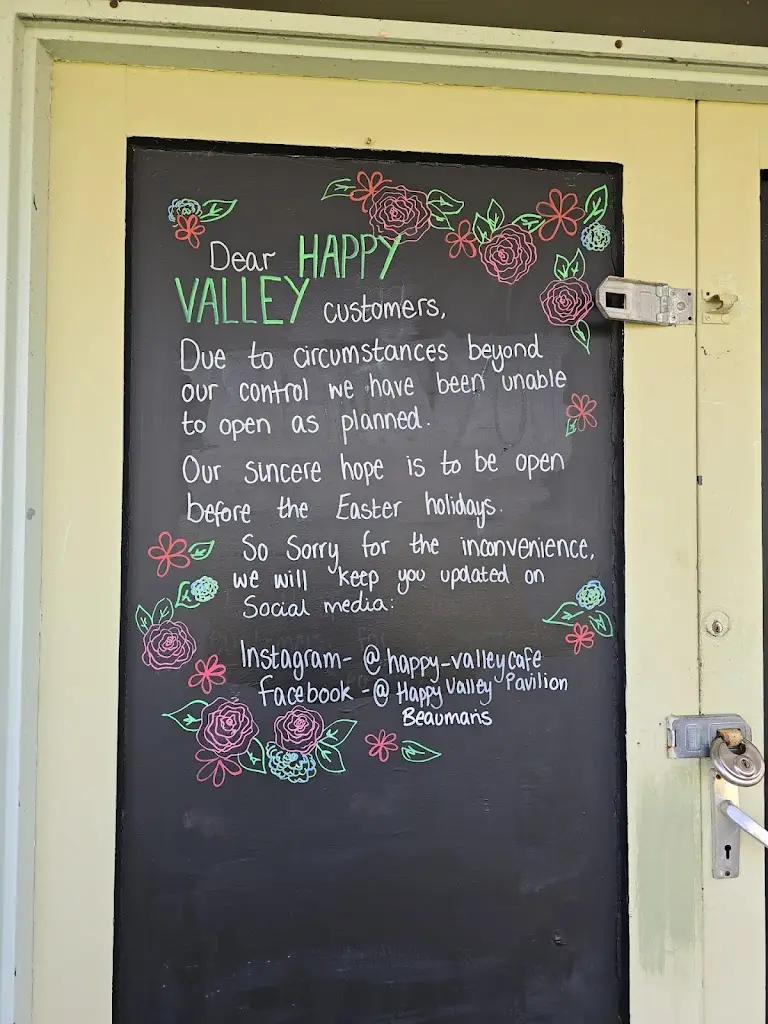 Dear HAPPY
VALLEY customers,
Due to circumstances beyond
our control we have been unable
to open as planned.
Our sincere hope is to be open
before the Easter holidays.
So Sorry for the inconvenience,
we will keep you updated on
Social media:
Instagram- @happy-valleycafe
Facebook -@ Happy Valley Pavilion
Beaumaris